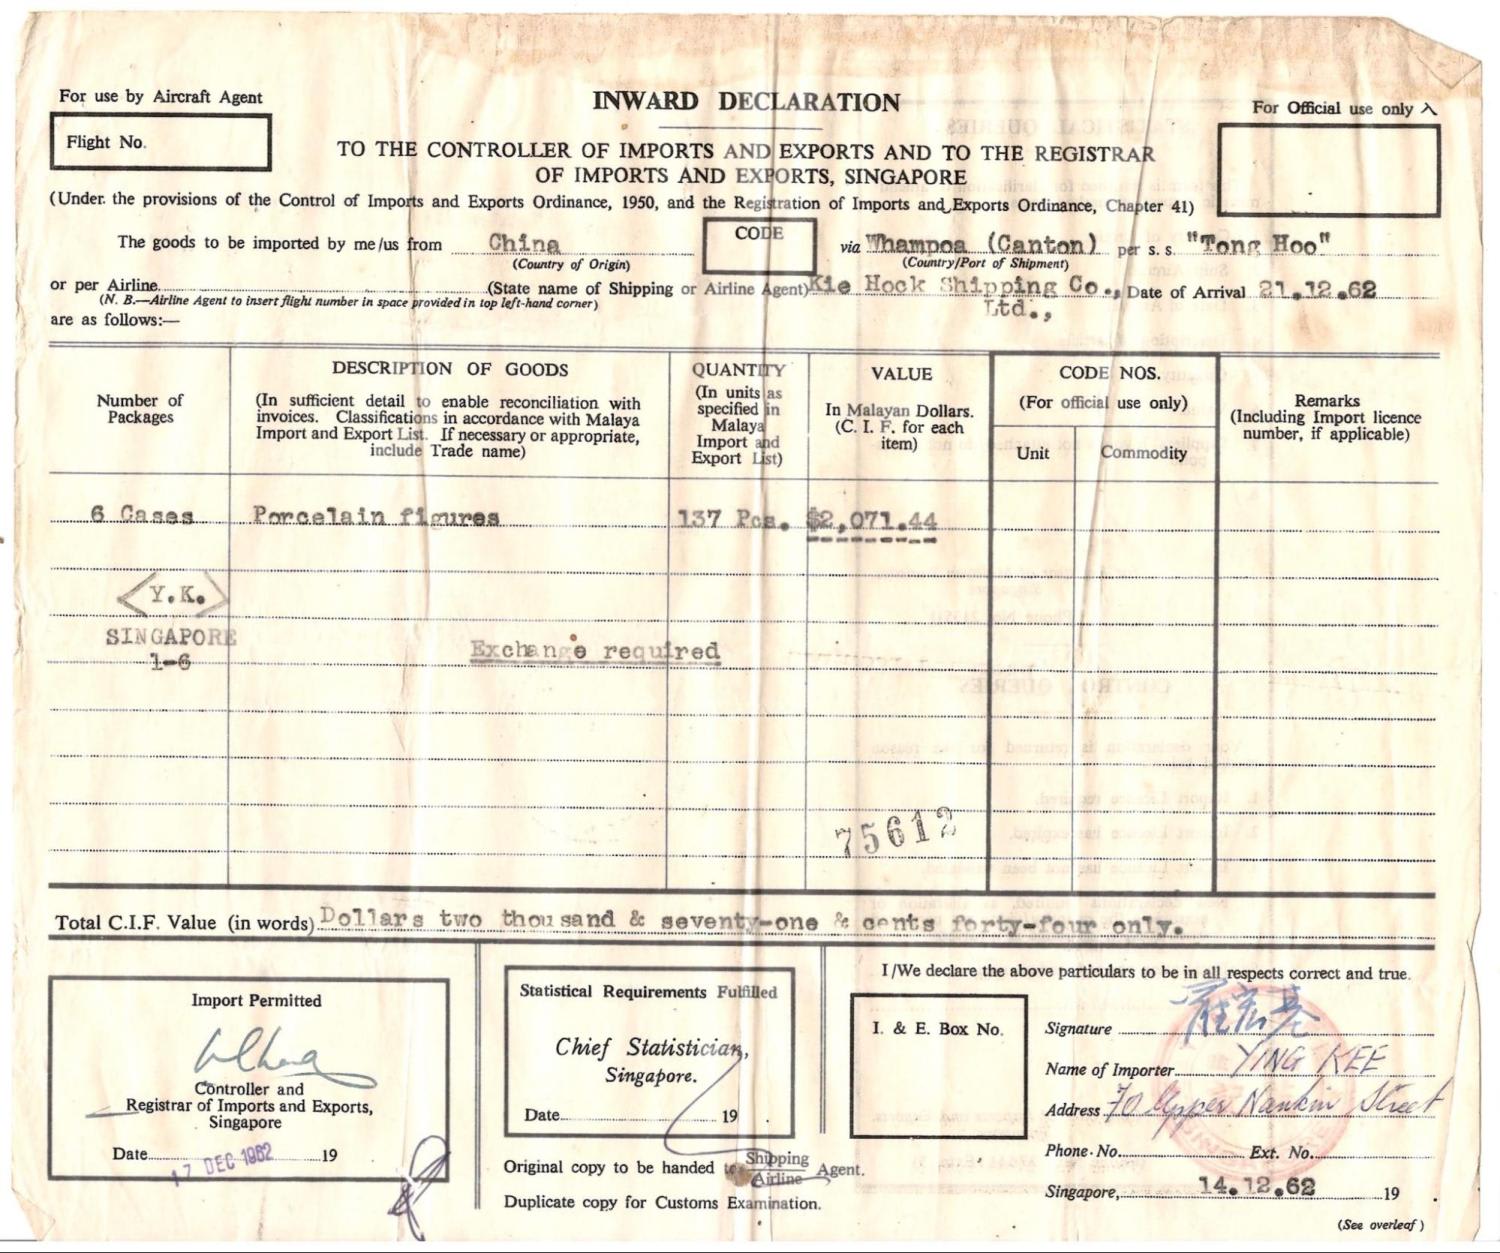 For use by Aircraft Agent
Flight No.
INWARD DECLARATION
For Official use only
TO THE CONTROLLER OF IMPORTS AND EXPORTS AND TO THE REGISTRAR
OF IMPORTS AND EXPORTS, SINGAPORE
(Under the provisions of the Control of Imports and Exports Ordinance, 1950, and the Registration of Imports and Exports Ordinance, Chapter 41)
The goods to be imported by me/us from China
(Country of Origin)
CODE
via Whampoa (Canton) per s. s. "Tong Hoo"
(Country/Port of Shipment)
or per Airline (State name of Shipping or Airline Agent) Kie Hock Shipping Co., Date of Arrival 21.12.62
Ltd.,
(N. B.—Airline Agent to insert flight number in space provided in top left-hand corner)
are as follows:—
Number of
Packages
DESCRIPTION OF GOODS
(In sufficient detail to enable reconciliation with
invoices. Classifications in accordance with Malaya
Import and Export List. If necessary or appropriate,
include Trade name)
QUANTITY
(In units as
specified in
Malaya
Import and
Export List)
VALUE
In Malayan Dollars.
(C. I. F. for each
item)
CODE NOS.
(For official use only)
Unit
Commodity
Remarks
(Including Import licence
number, if applicable)
6 Cases Porcelain figures 137 Pcs. $2,071.44
Y.K.
SINGAPORE
1-6
Exchange required
75612
Total C.I.F. Value (in words) Dollars two thousand & seventy-one & cents forty-four only.
Import Permitted
Controller and
Registrar of Imports and Exports,
Singapore
Date 17 DEC 1962 19
Statistical Requirements Fulfilled
Chief Statistician,
Singapore.
Date 19
Original copy to be handed to Shipping
Airline Agent.
Duplicate copy for Customs Examination.
I/We declare the above particulars to be in all respects correct and true.
I. & E. Box No.
Signature
Name of Importer YING KEE
Address 70 Upper Nankin Street
Phone No. Ext. No.
Singapore, 14.12.62 19
(See overleaf)